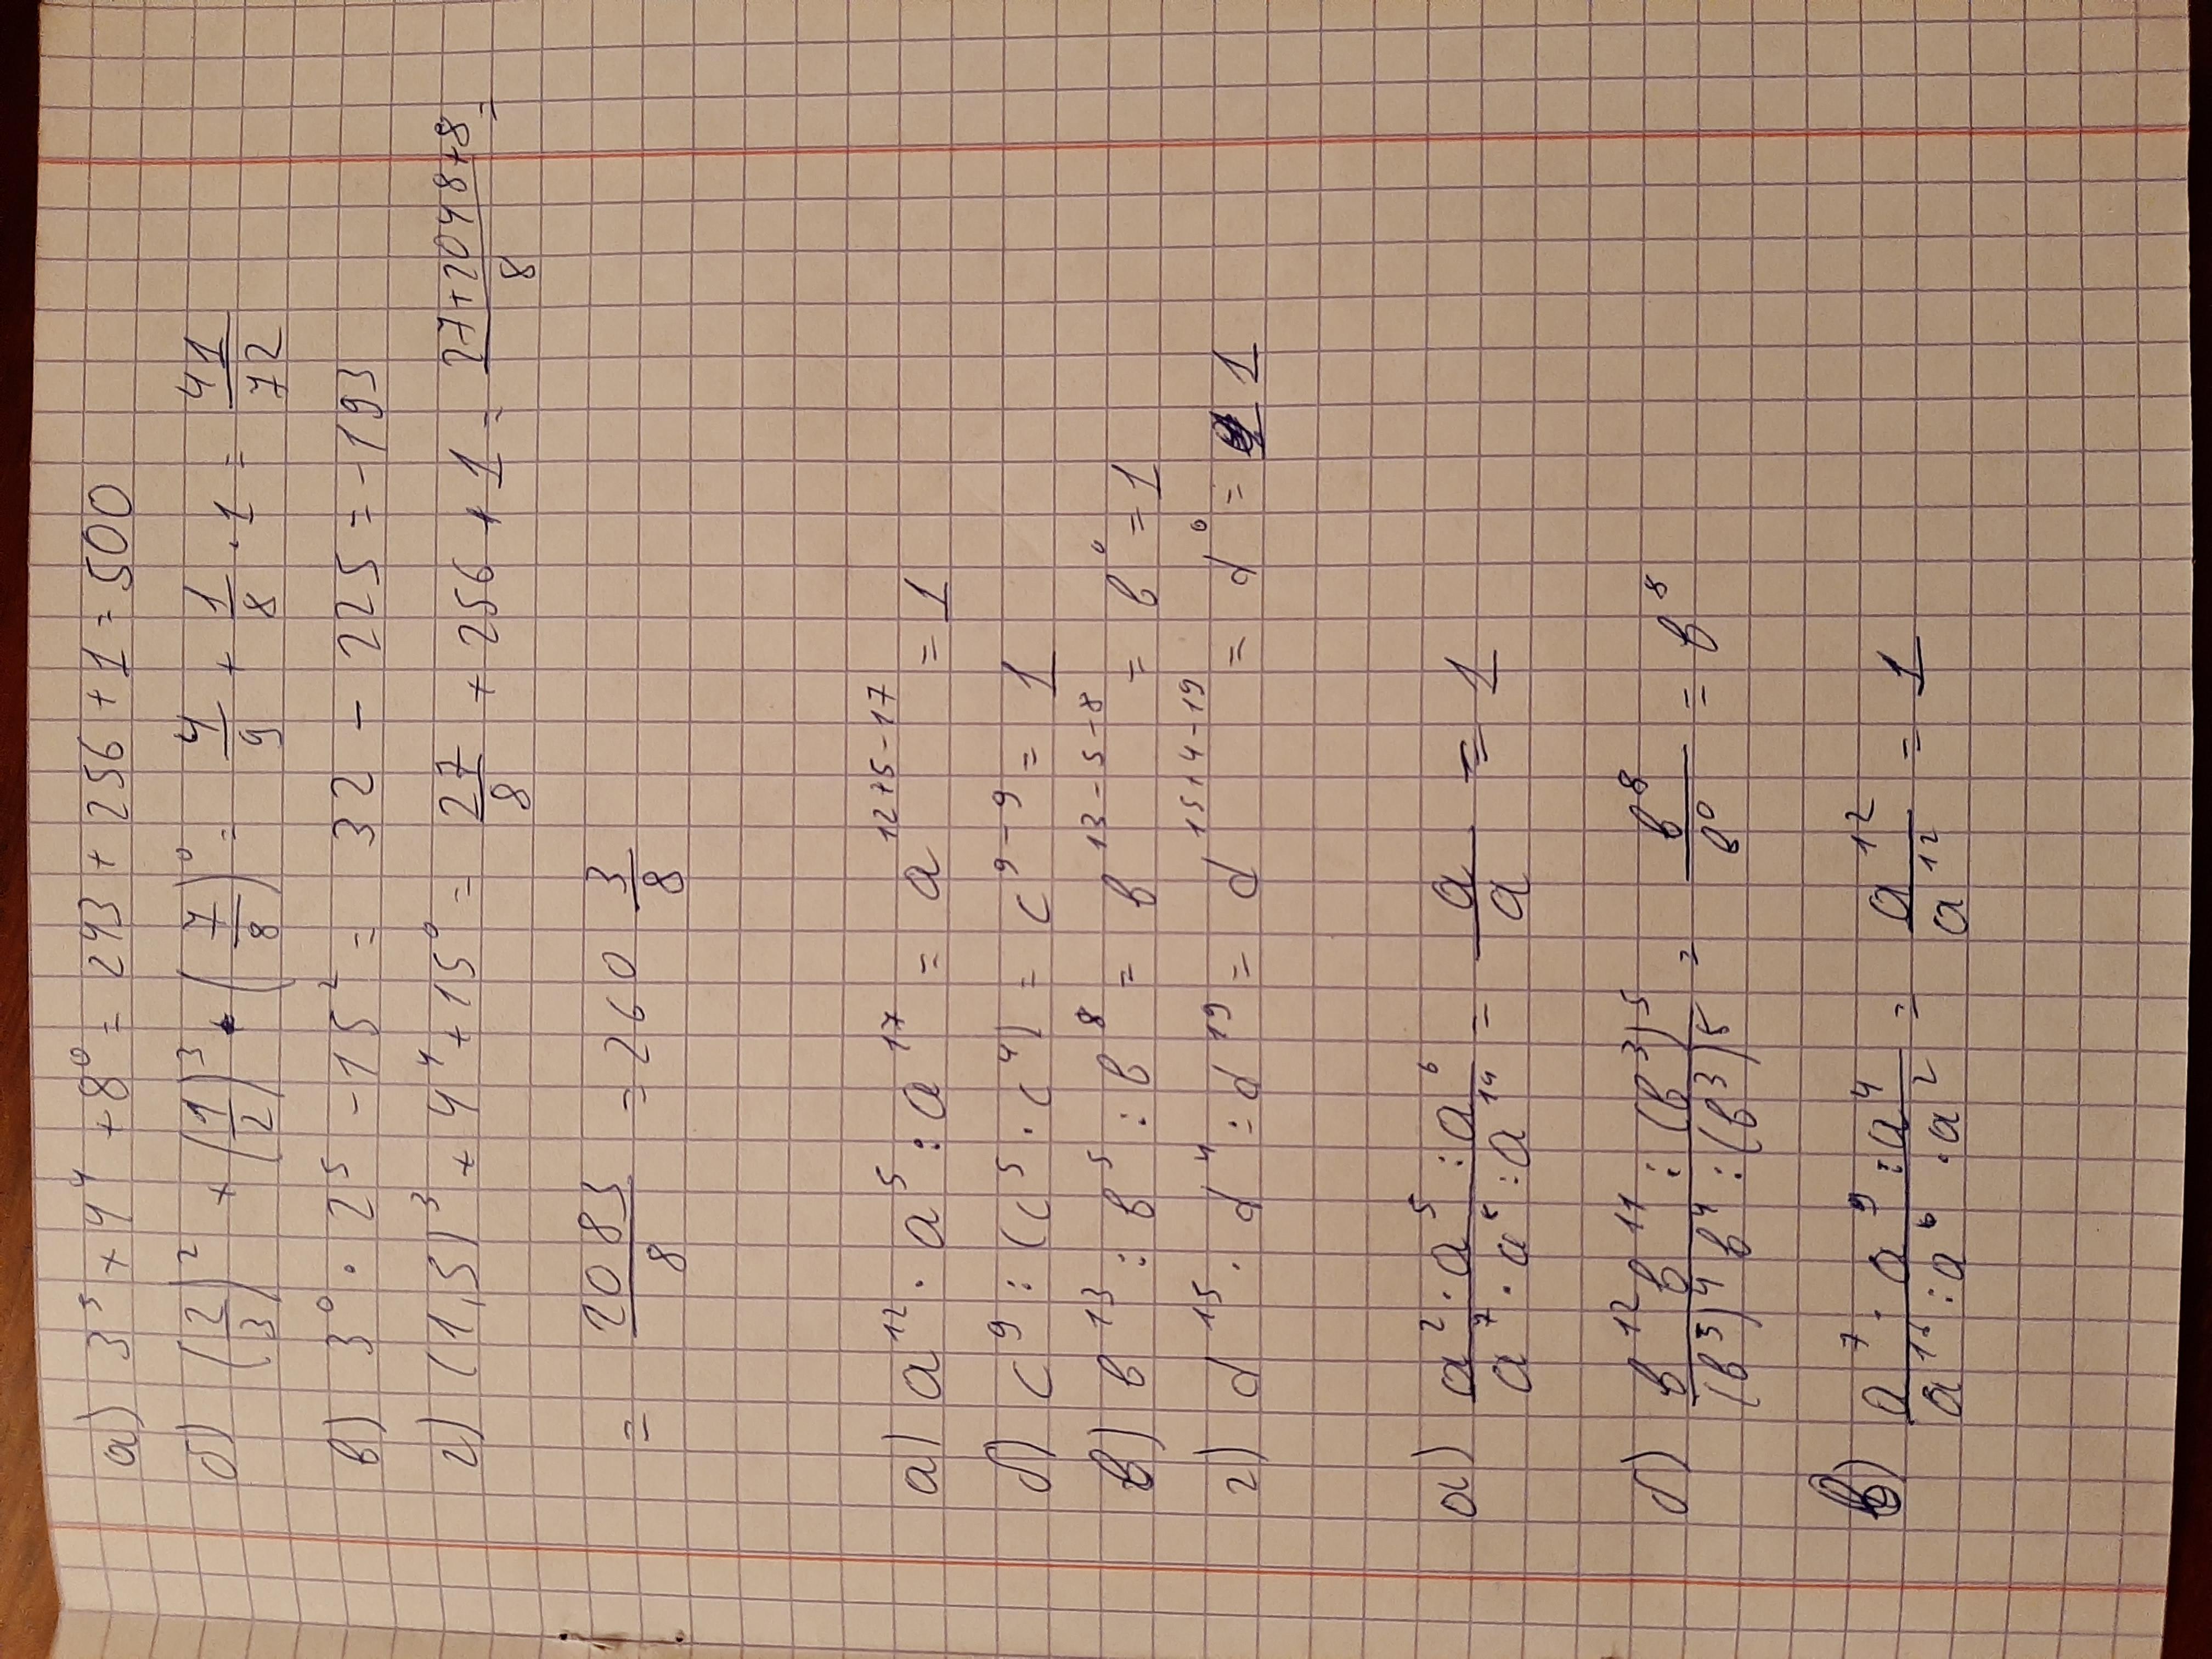 а) 3⁵ + 4⁴ + 8⁰ = 243 + 256 + 1 = 500
б) (2/3)² + (1/2)³ · (7/8)⁰ = 4/9 + 1/8 · 1 = 41/72
в) 3⁰ · 2⁵ - 15² = 32 - 225 = -193
г) (1,5)³ + 4⁴ + 15⁰ = 27/8 + 256 + 1 = (27+2048+8)/8 =
= 2083/8 = 260 3/8
а) a¹² · a⁵ : a¹⁷ = a¹²⁺⁵⁻¹⁷ = 1
б) c⁹ : (c⁵ · c⁴) = c⁹⁻⁹ = 1
в) b¹³ : b⁵ : b⁸ = b¹³⁻⁵⁻⁸ = b⁰ = 1
г) d¹⁵ · d⁴ : d¹⁹ = d¹⁵⁺⁴⁻¹⁹ = d⁰ = 1
а) (a² · a⁵ : a⁶)/(a⁷ · a : a¹⁴) = a/a = 1
б) (b¹² b¹¹ : (b³)⁵)/((b³)⁴ b⁴ : (b³)⁵) = b⁸/b⁰ = b⁸
в) (a⁷ · a⁹ : a⁴)/(a¹⁶ : a⁶ · a²) = a¹²/a¹² = 1